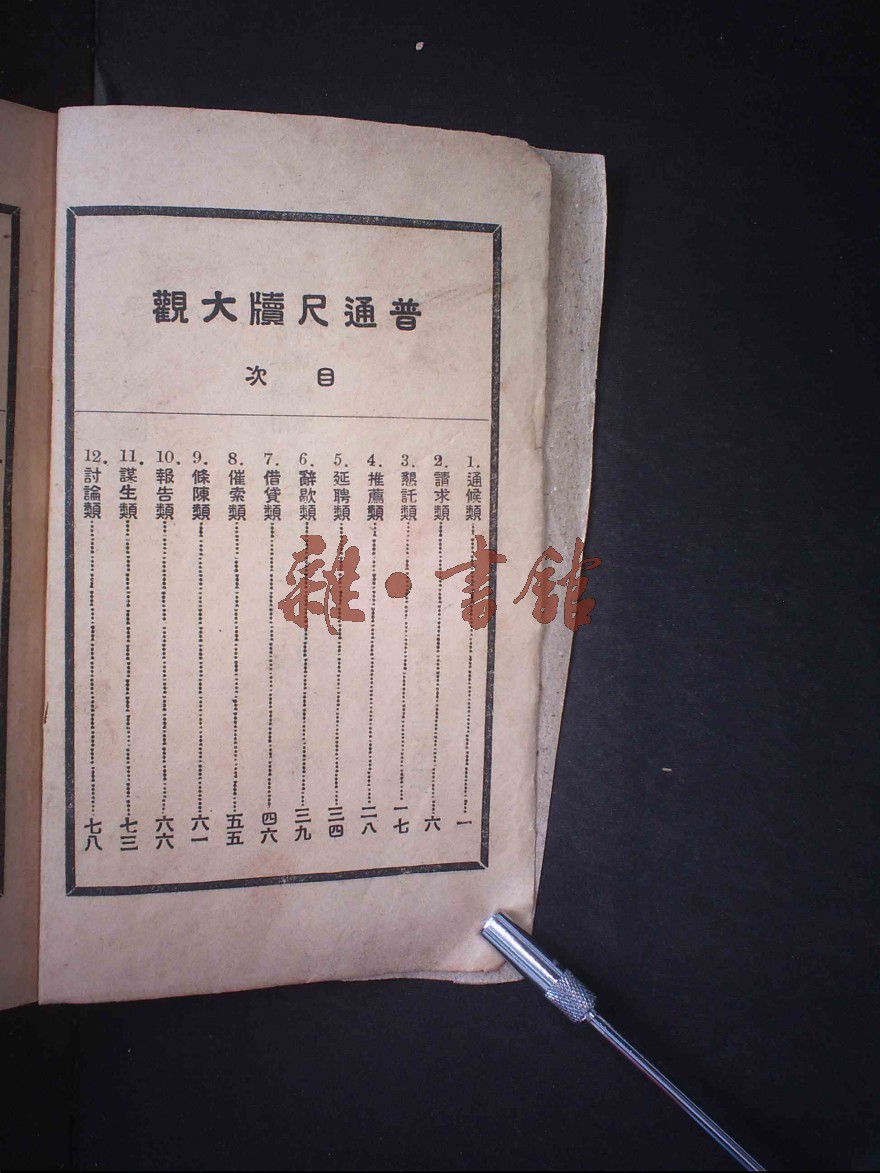 普通尺牘大觀
目次
1. 通候類 一
2. 請求類 六
3. 懇託類 一七
4. 推薦類 二八
5. 延聘類 三四
6. 辭歇類 三九
7. 借貸類 四六
8. 催索類 五五
9. 條陳類 六一
10. 報告類 六六
11. 謀生類 七三
12. 討論類 七八
雜·書館